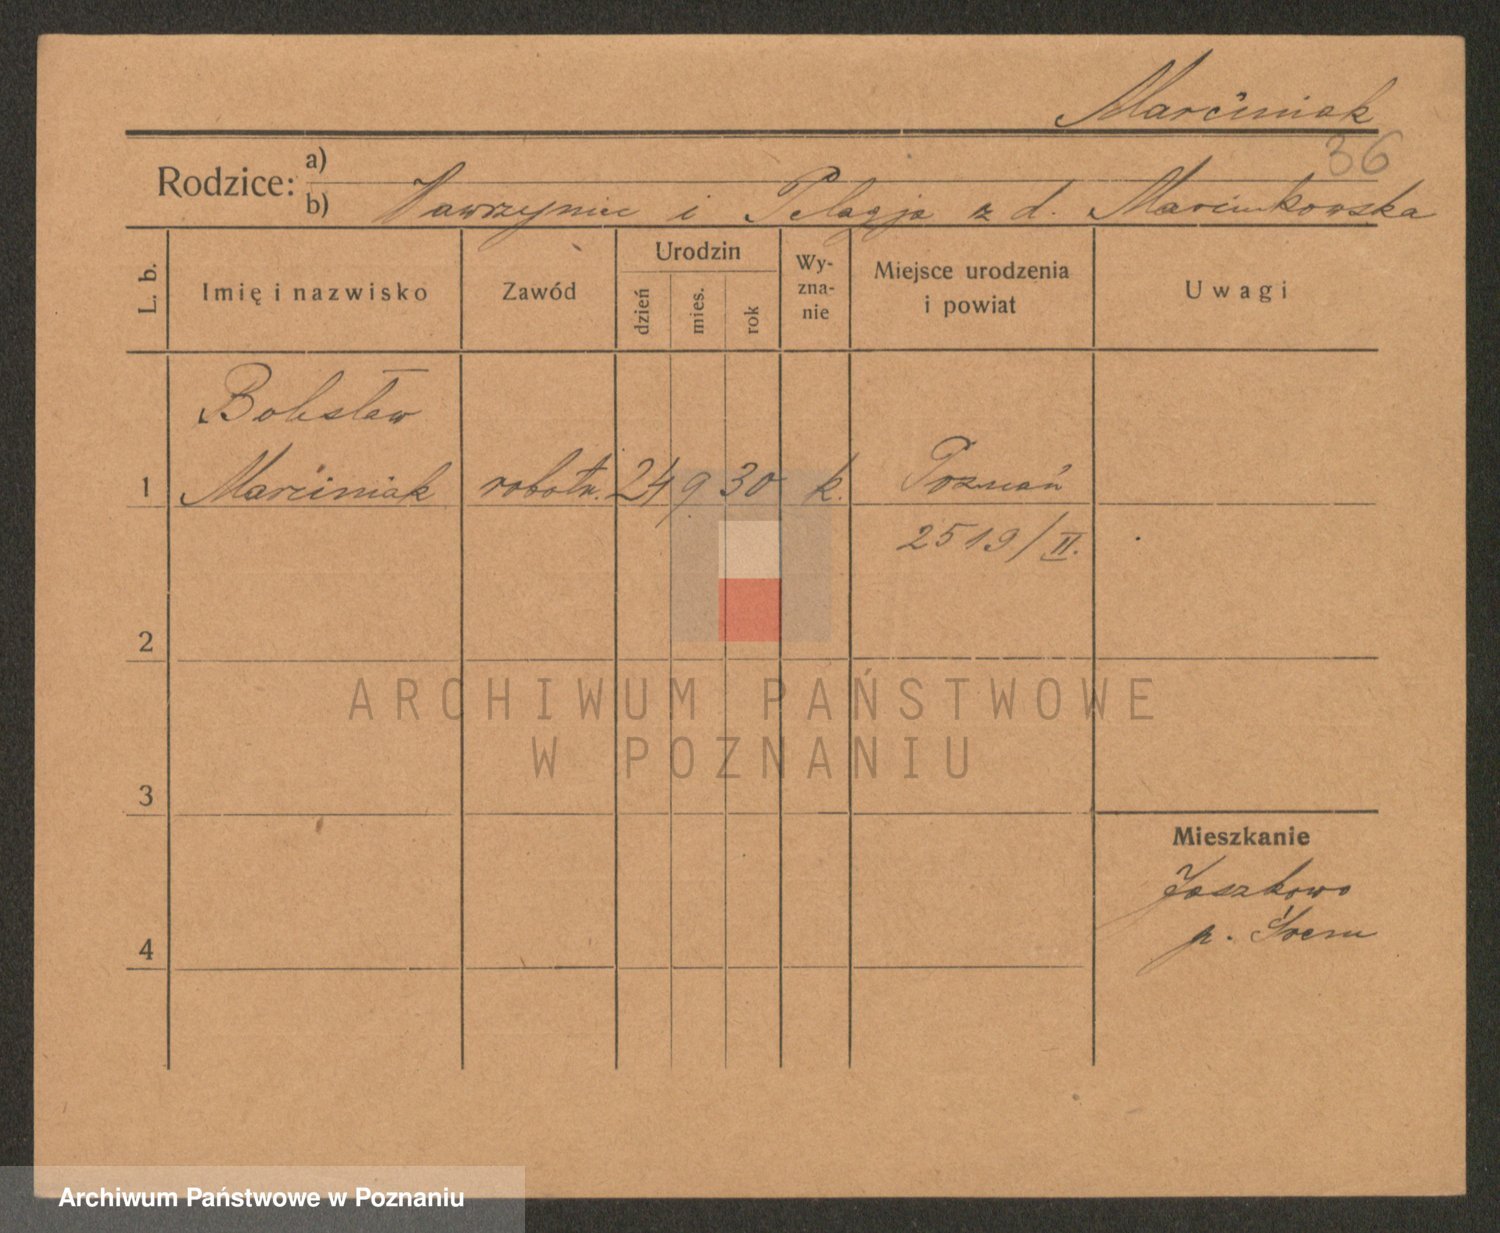 Marciniak
36
Rodzice: a)
b) Wawrzyniec i Pelagja z d. Marcinkowska
L. b. Imię i nazwisko Zawód Urodzin dzień mies. rok Wy-zna-nie Miejsce urodzenia i powiat Uwagi
Bolesław
1 Marciniak robotn. 24 9 30 k. Poznań
2519/II.
2
ARCHIWUM PAŃSTWOWE
W POZNANIU
3
Mieszkanie
Jaszkowo
p. Śrem
4
Archiwum Państwowe w Poznaniu